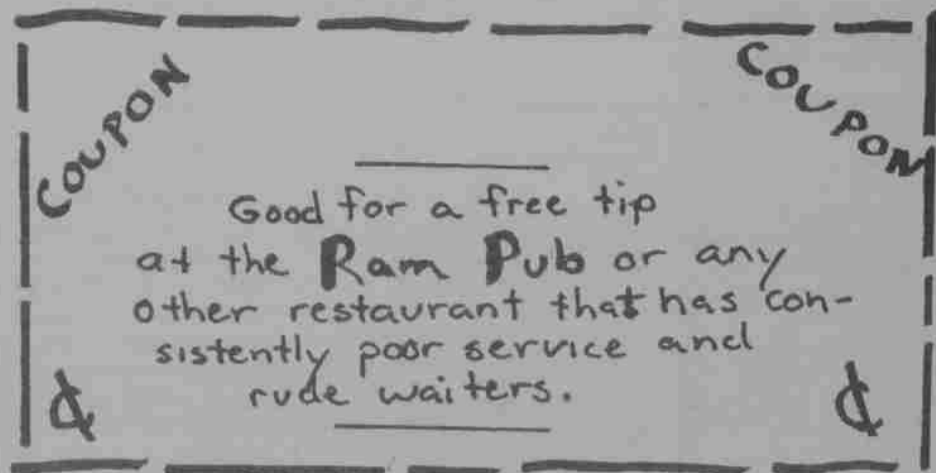 COUPON
COUPON
Good for a free tip
at the Ram Pub or any
other restaurant that has con-
sistently poor service and
rude waiters.
¢
¢